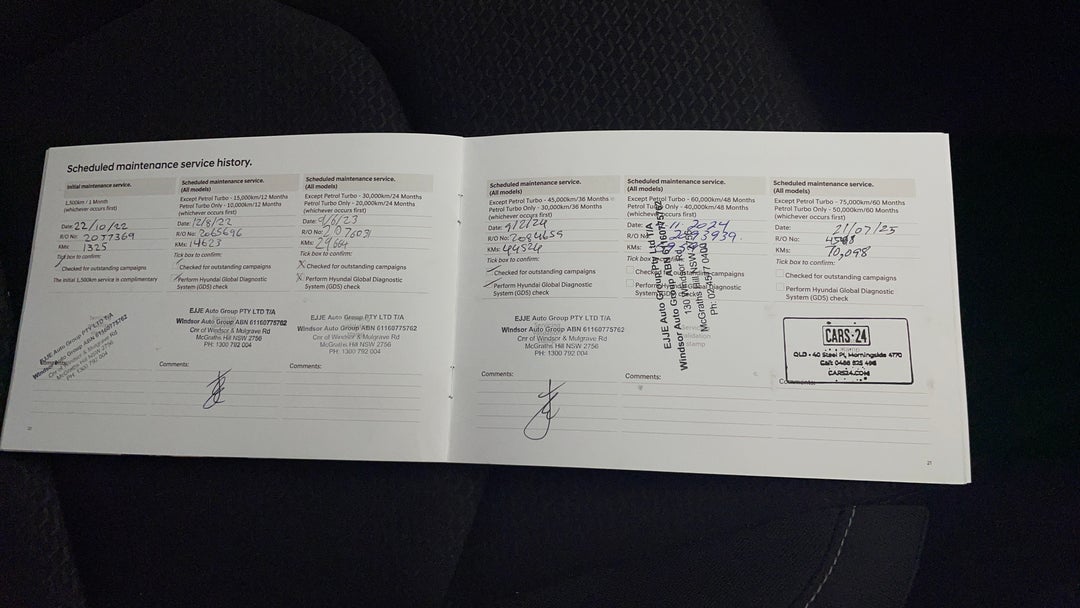 Scheduled maintenance service history.
Initial maintenance service.
1,500km / 1 Month
(whichever occurs first)
Date: 22/10/22
R/O No: 2037369
KMs: 1325
Tick box to confirm:
Checked for outstanding campaigns
The initial 1,500km service is complimentary
EJJE Auto Group PTY LTD T/A
Windsor Auto Group ABN 61160775762
Cnr of Windsor & Mulgrave Rd
McGraths Hill NSW 2756
PH: 1300 792 004
Scheduled maintenance service.
(All models)
Except Petrol Turbo - 15,000km/12 Months
Petrol Turbo Only - 10,000km/12 Months
(whichever occurs first)
Date: 12/8/22
R/O No: 2065696
KMs: 14623
Tick box to confirm:
Checked for outstanding campaigns
Perform Hyundai Global Diagnostic
System (GDS) check
EJJE Auto Group PTY LTD T/A
Windsor Auto Group ABN 61160775762
Cnr of Windsor & Mulgrave Rd
McGraths Hill NSW 2756
PH: 1300 792 004
Comments:
Scheduled maintenance service.
(All models)
Except Petrol Turbo - 30,000km/24 Months
Petrol Turbo Only - 20,000km/24 Months
(whichever occurs first)
Date: 9/6/23
R/O No: 2076031
KMs: 29664
Tick box to confirm:
Checked for outstanding campaigns
Perform Hyundai Global Diagnostic
System (GDS) check
EJJE Auto Group PTY LTD T/A
Windsor Auto Group ABN 61160775762
Cnr of Windsor & Mulgrave Rd
McGraths Hill NSW 2756
PH: 1300 792 004
Comments:
Scheduled maintenance service.
(All models)
Except Petrol Turbo - 45,000km/36 Months
Petrol Turbo Only - 30,000km/36 Months
(whichever occurs first)
Date: 9/2/24
R/O No: 2084659
KMs: 44524
Tick box to confirm:
Checked for outstanding campaigns
Perform Hyundai Global Diagnostic
System (GDS) check
EJJE Auto Group PTY LTD T/A
Windsor Auto Group ABN 61160775762
Cnr of Windsor & Mulgrave Rd
McGraths Hill NSW 2756
PH: 1300 792 004
Comments:
Scheduled maintenance service.
(All models)
Except Petrol Turbo - 60,000km/48 Months
Only - 40,000km/48 Months
(whichever occurs first)
11. 2024
R/O No: 2093939
KMs:
Checked for outstanding campaigns
EJJE Auto Group Pty Ltd T/A
Windsor Auto Group ABN
130 Windsor Rd
McGraths Hill NSW
Ph: 02 4577
stamp
Comments:
Scheduled maintenance service.
(All models)
Except Petrol Turbo - 75,000km/60 Months
Petrol Turbo Only - 50,000km/60 Months
(whichever occurs first)
Date: 21/07/25
R/O No:
KMs: 70,098
Tick box to confirm:
Checked for outstanding campaigns
Perform Hyundai Global Diagnostic
System (GDS) check
CARS24
QLD - 40 Steel Pl, Morningside 4170
Call: 0486 825 496
CARS24.COM
Comments:
21